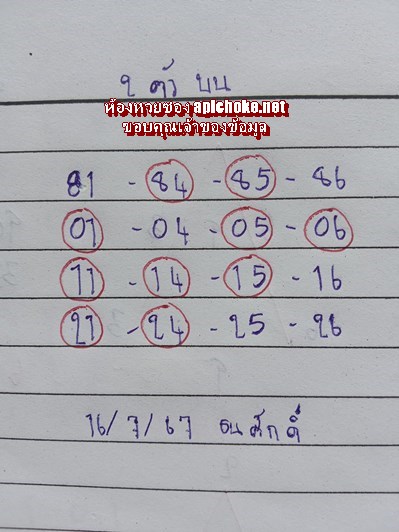 2 ตัว บน
ห้องหวยซอง apichoke.net
ขอบคุณเจ้าของข้อมูล
81 - 84 - 85 - 86
01 - 04 - 05 - 06
11 - 14 - 15 - 16
21 - 24 - 25 - 26
16/7/67 ธนศักดิ์